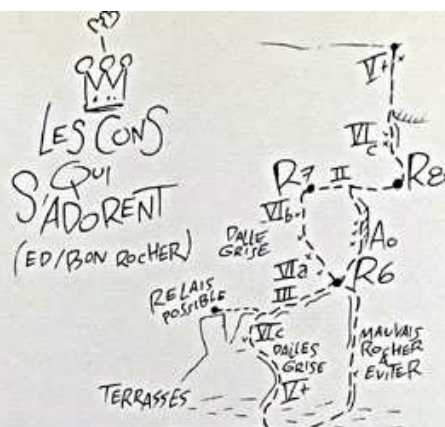 LES CONS
QUI
S'ADORENT
(ED/BON ROCHER)
V+
VI
c
R7
II
R8
VIb
DALLE
GRISE
A0
VIa
R6
III
RELAIS
POSSIBLE
VIc
DALLES
GRISE
V+
TERRASSES
MAUVAIS
ROCHER
A
EVITER